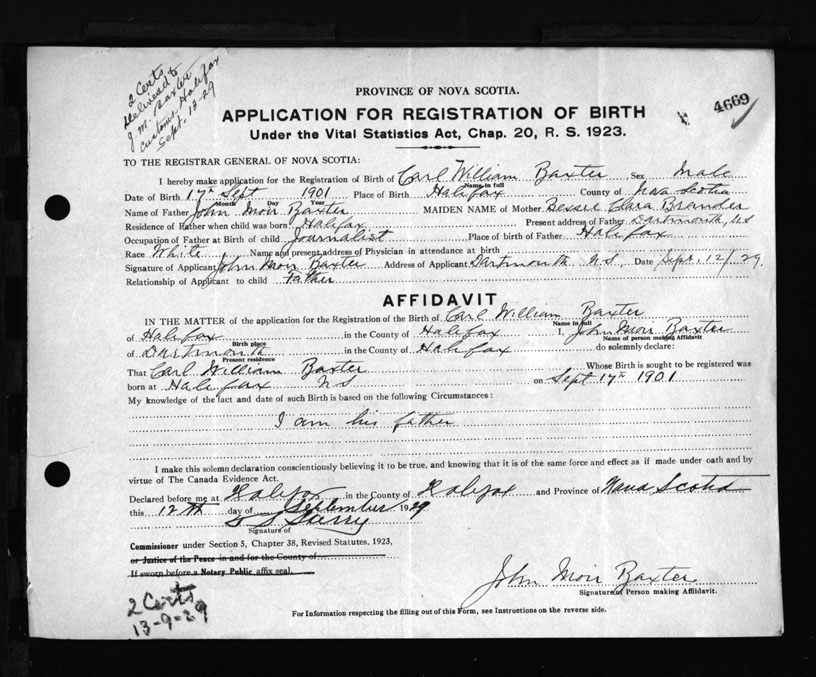 2 Certs
delivered to
J. M. Baxter
Customs, Halifax
Sept. 13-29
4669
PROVINCE OF NOVA SCOTIA.
APPLICATION FOR REGISTRATION OF BIRTH
Under the Vital Statistics Act, Chap. 20, R. S. 1923.
TO THE REGISTRAR GENERAL OF NOVA SCOTIA:
I hereby make application for the Registration of Birth of Carl William Baxter Sex Male
Name in full
Date of Birth 17th Sept 1901 Place of Birth Halifax County of Nova Scotia
Month Day Year
Name of Father John Moir Baxter MAIDEN NAME of Mother Bessie Clara Brander
Residence of Father when child was born Halifax Present address of Father Dartmouth, NS
Occupation of Father at Birth of child Journalist Place of birth of Father Halifax
Race White Name and present address of Physician in attendance at birth
Signature of Applicant John Moir Baxter Address of Applicant Dartmouth N.S. Date Sept. 12/29.
Relationship of Applicant to child Father
AFFIDAVIT
IN THE MATTER of the application for the Registration of the Birth of Carl William Baxter
Name in full
of Halifax in the County of Halifax I, John Moir Baxter
Birth place Name of person making Affidavit
of Dartmouth in the County of Halifax do solemnly declare:
Present residence
That Carl William Baxter Whose Birth is sought to be registered was
born at Halifax NS on Sept 17th 1901
My knowledge of the fact and date of such Birth is based on the following Circumstances:
I am his father
I make this solemn declaration conscientiously believing it to be true, and knowing that it is of the same force and effect as if made under oath and by
virtue of The Canada Evidence Act.
Declared before me at Halifax in the County of Halifax and Province of Nova Scotia
this 12th day of September 1929
Signature of
Commissioner under Section 5, Chapter 38, Revised Statutes, 1923,
or Justice of the Peace in and for the County of
If sworn before a Notary Public affix seal.
John Moir Baxter
Signature of Person making Affidavit.
2 Certs
13-9-29
For Information respecting the filling out of this Form, see Instructions on the reverse side.